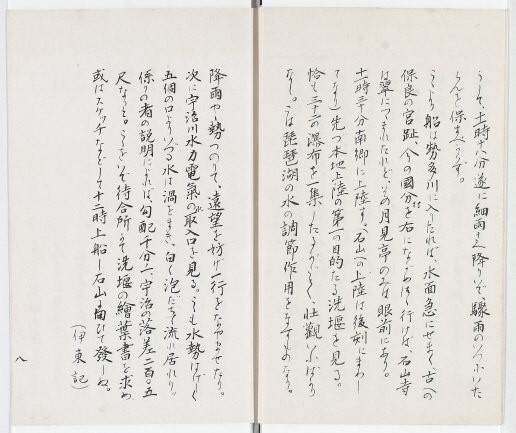 うして、十時十八分遂に細雨さへ降りいで驟雨のいつにいた
らんを保すべからず。
うらより船は勢多川に入りたれば、水面急にせまく、古への
保良の宮趾、今の國分を右にながめつゝ行けば、石山寺
は翠につゝまれたれど、その月見亭のみは眼前にあり。
十一時三十分南郷に上陸す、石山への上陸は後刻にまわし
てなり）先つ本地上陸の第一の目的たる洗堰を見る。
恰も三十二の瀑布を一集したるがごとく、壯觀いふばかり
なし。こは琵琶湖の水の調節作用をなすものなり。
降雨や勢つのりて、遠望を妨げ一行をなやませたり。
次に宇治川水力電氣の取入口を見る。こも水勢はげしく
五個の口よりいづる水は渦をまき、白く泡だちて流れ居れり。
係りの者の説明によれば、勾配千分一、宇治の落差二百〇五
尺なりと。こゝをいで待合所にて洗堰の繪葉書を求め
或はスケッチなどして十二時上船し石山に向ひて發しぬ。
（伊東記）
八